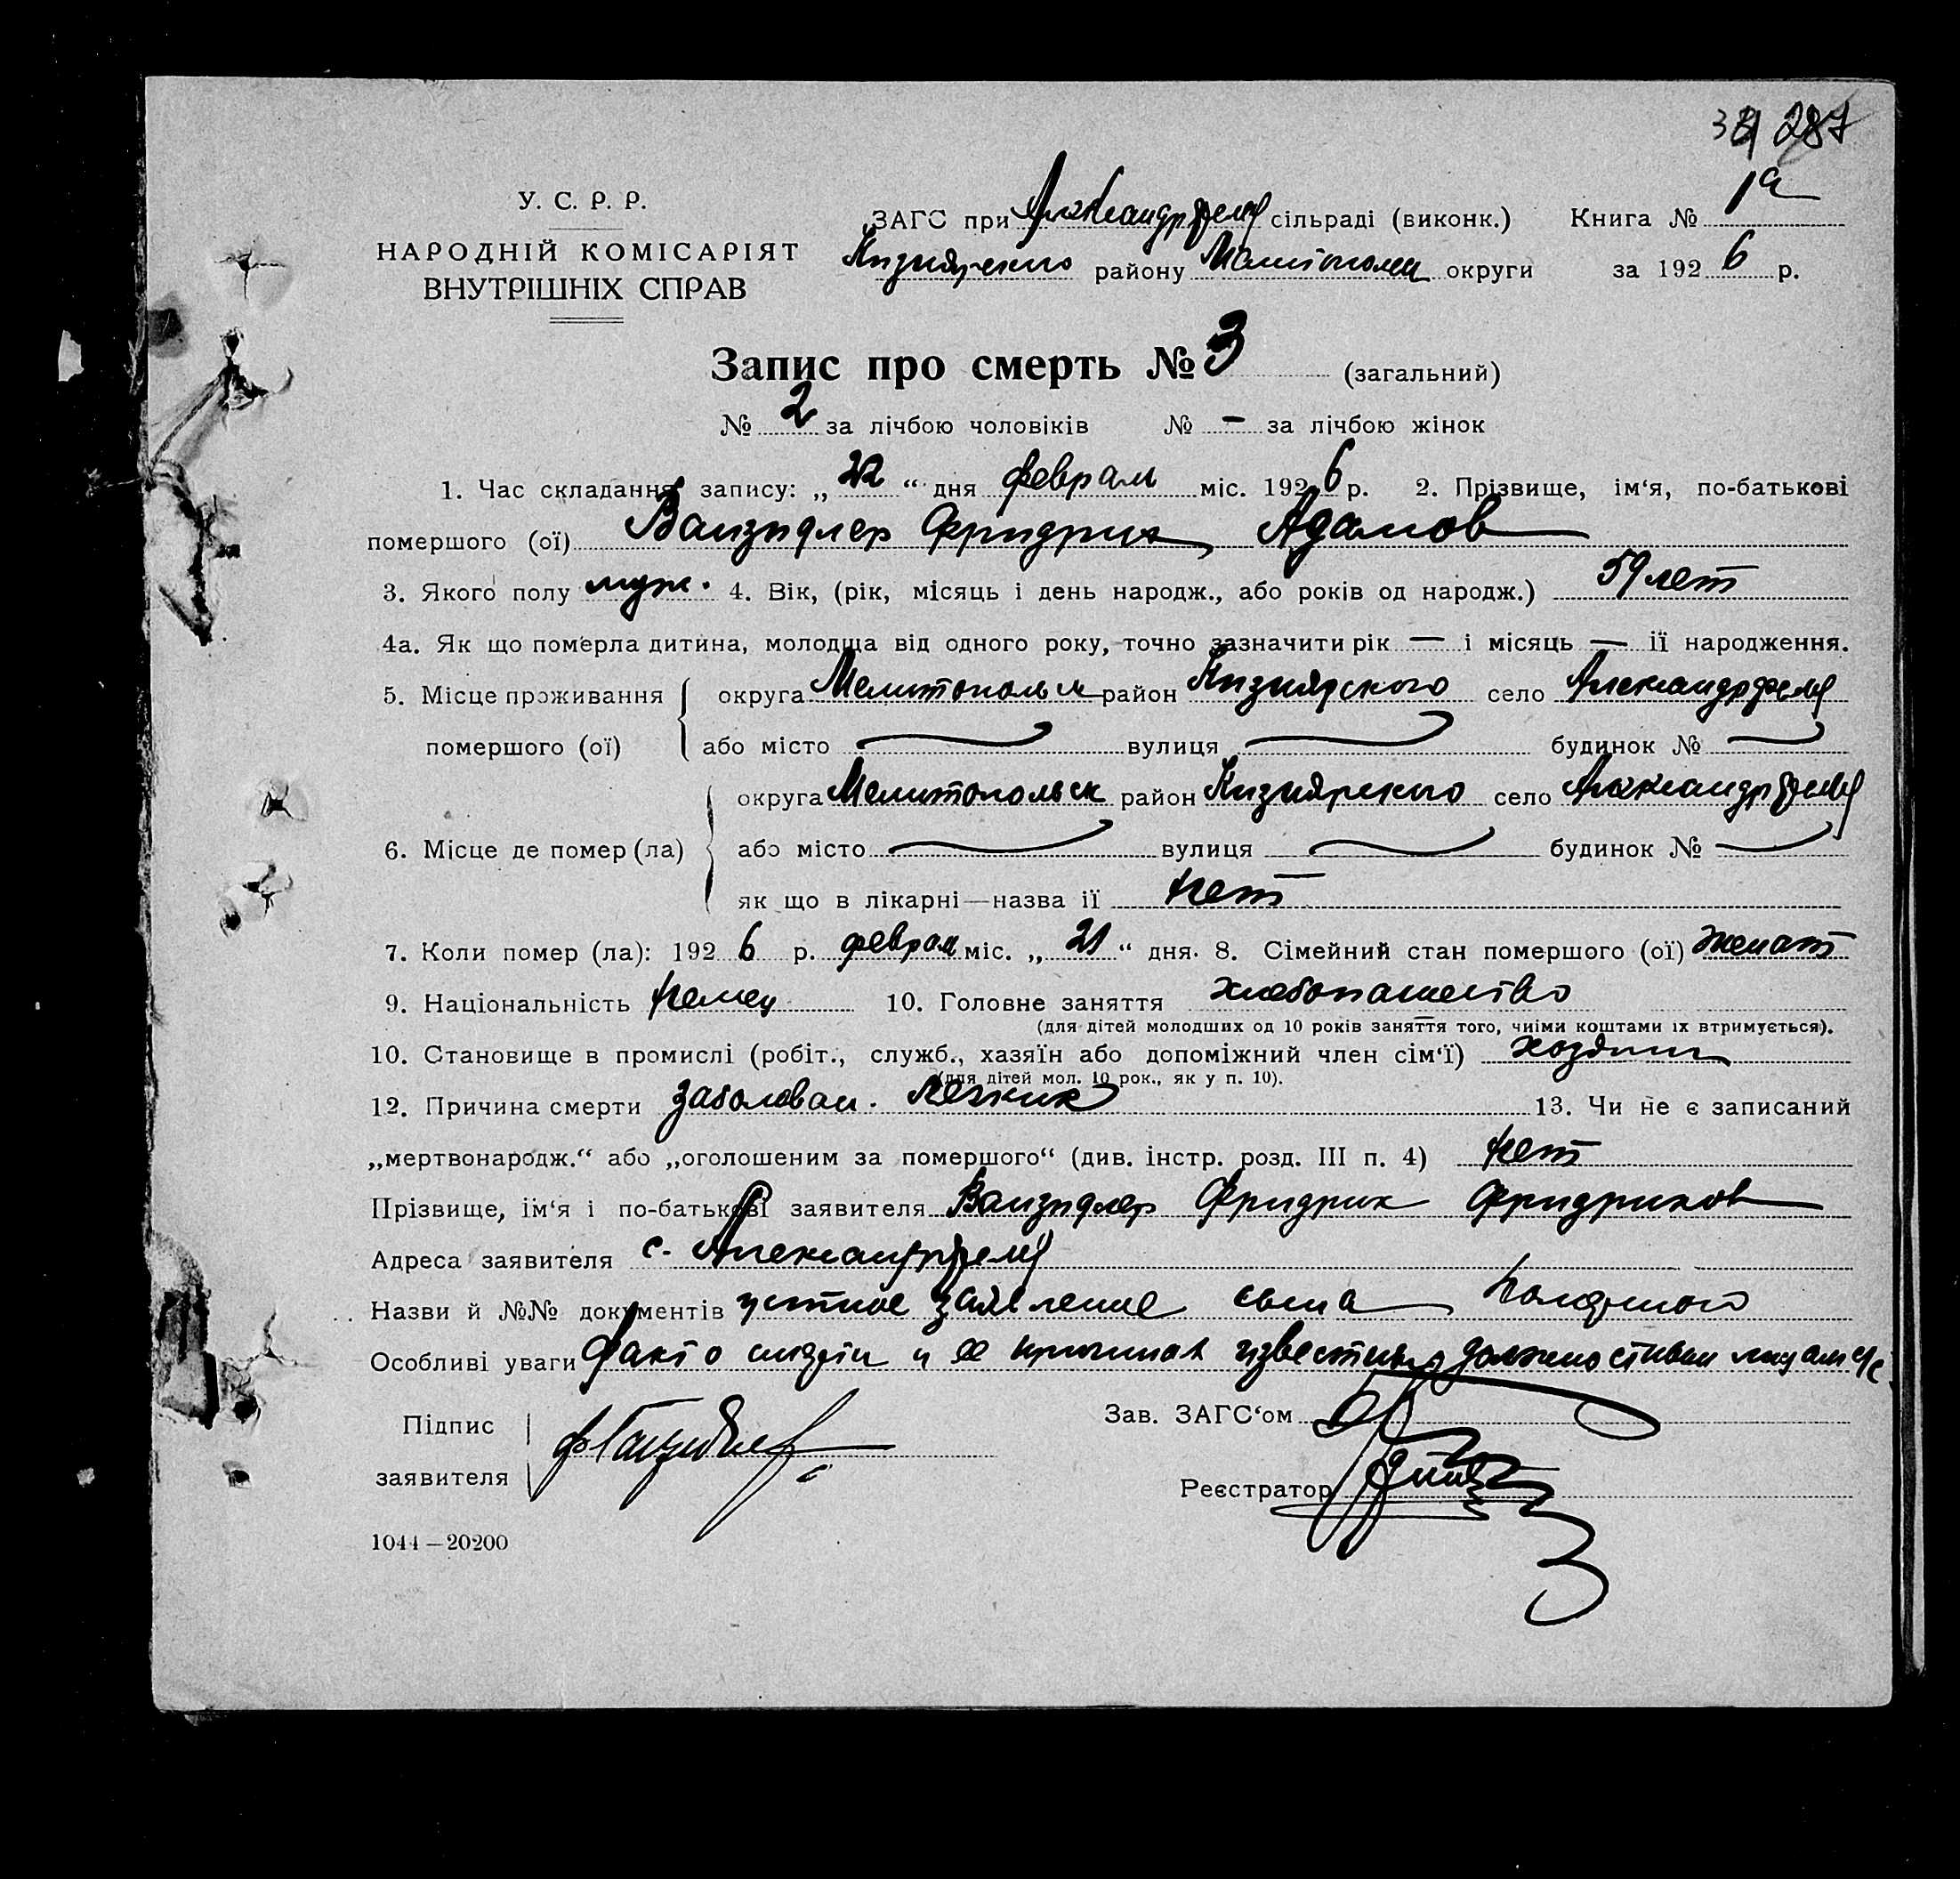 287
У. С. Р. Р.
НАРОДНІЙ КОМІСАРІЯТ
ВНУТРІШНІХ СПРАВ
ЗАГС при Александрфельд сільраді (виконк.) Книга № 1а
Кизиярского району Мелитополя округи за 1926 р.
Запис про смерть № 3 (загальний)
№ 2 за лічбою чоловіків № — за лічбою жінок
1. Час складання запису: „22“ дня февраля міс. 1926 р. 2. Прізвище, ім‘я, по-батькові
помершого (ої) Ванзидлер Фридрих Адамов
3. Якого полу муж. 4. Вік, (рік, місяць і день народж., або років од народж.) 59 лет
4а. Як що померла дитина, молодща від одного року, точно зазначити рік — і місяць — її народження.
5. Місце проживання округа Мелитопольск район Кизиярского село Александрфельд
помершого (ої) або місто — вулиця — будинок № —
округа Мелитопольск район Кизиярского село Александрфельд
6. Місце де помер (ла) або місто — вулиця — будинок № —
як що в лікарні—назва її нет
7. Коли помер (ла): 1926 р. февраля міс. „21“ дня. 8. Сімейний стан помершого (ої) женат
9. Національність немец 10. Головне заняття хлебопашество
(для дітей молодших од 10 років заняття того, чиїми коштами їх втримується).
10. Становище в промислі (робіт., служб., хазяїн або допоміжний член сім‘ї) хозяин
(для дітей мол. 10 рок., як у п. 10).
12. Причина смерти заболеван. легких 13. Чи не є записаний
„мертвонародж.“ або „оголошеним за помершого“ (див. інстр. розд. III п. 4) нет
Прізвище, ім‘я і по-батькові заявителя Ванзидлер Фридрих Фридрихов
Адреса заявителя с. Александрфельд
Назви й №№ документів устное заявление сына
Особливі уваги Факт о смерти и ее причинах известны должностным лицам с/с
Підпис
заявителя
Зав. ЗАГС‘ом
Реєстратор
1044—20200